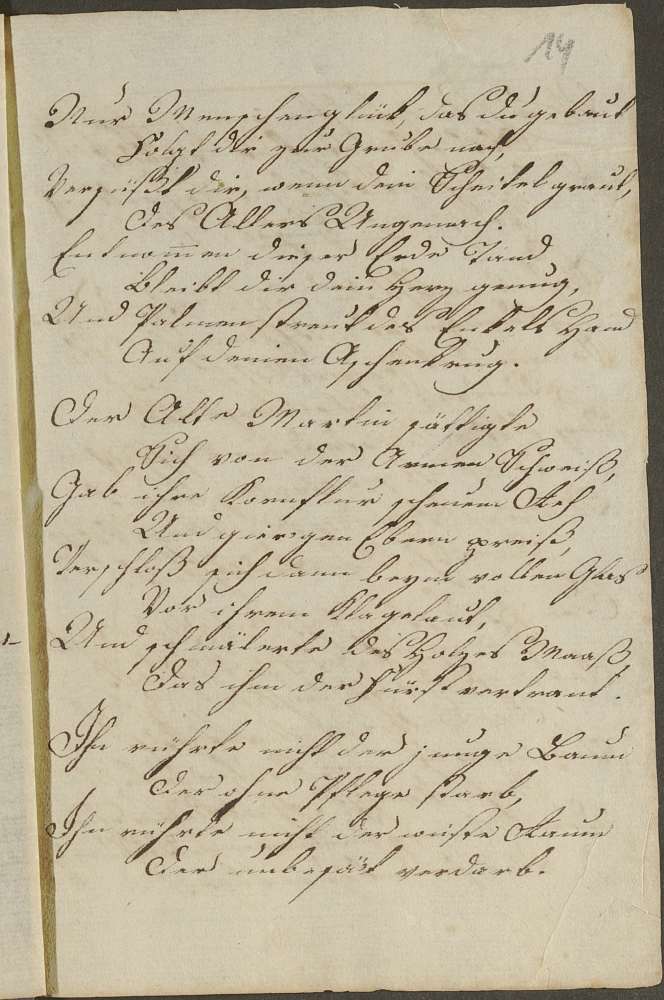 14
Nur Menschenglück, das du gebaut
Folgt dir zur Grube nach,
Versüßt dir, wenn dein Scheitel graut,
Des Alters Ungemach.
Entnom̅en dieser Erde Tand
Bleibt dir dein Herz genug,
Und Palmen streut des Enkels Hand
Auf deinen Aschenkrug.
Der Alte Martin sättigte
Sich von der Armen Schweiß,
Gab ihre Kornflur scheuem Reh
Und giergen Ebern preiß,
Verschloß sich dann beym vollen Glas
Vor ihrem Klagelaut,
Und schmälerte des Holzes Maaß,
Das ihm der Fürst vertraut.
Ihn rührte nicht der junge Baum
Der ohne Pflege starb,
Ihn rührte nicht der wüste Raum
Der unbesät verdarb.